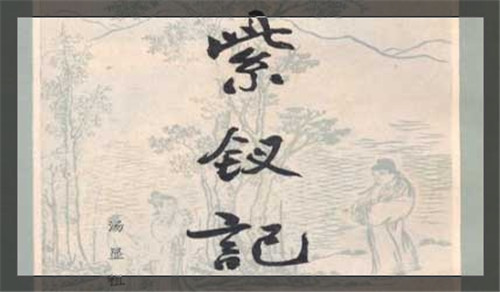 紫
釵
記
湯
显
祖